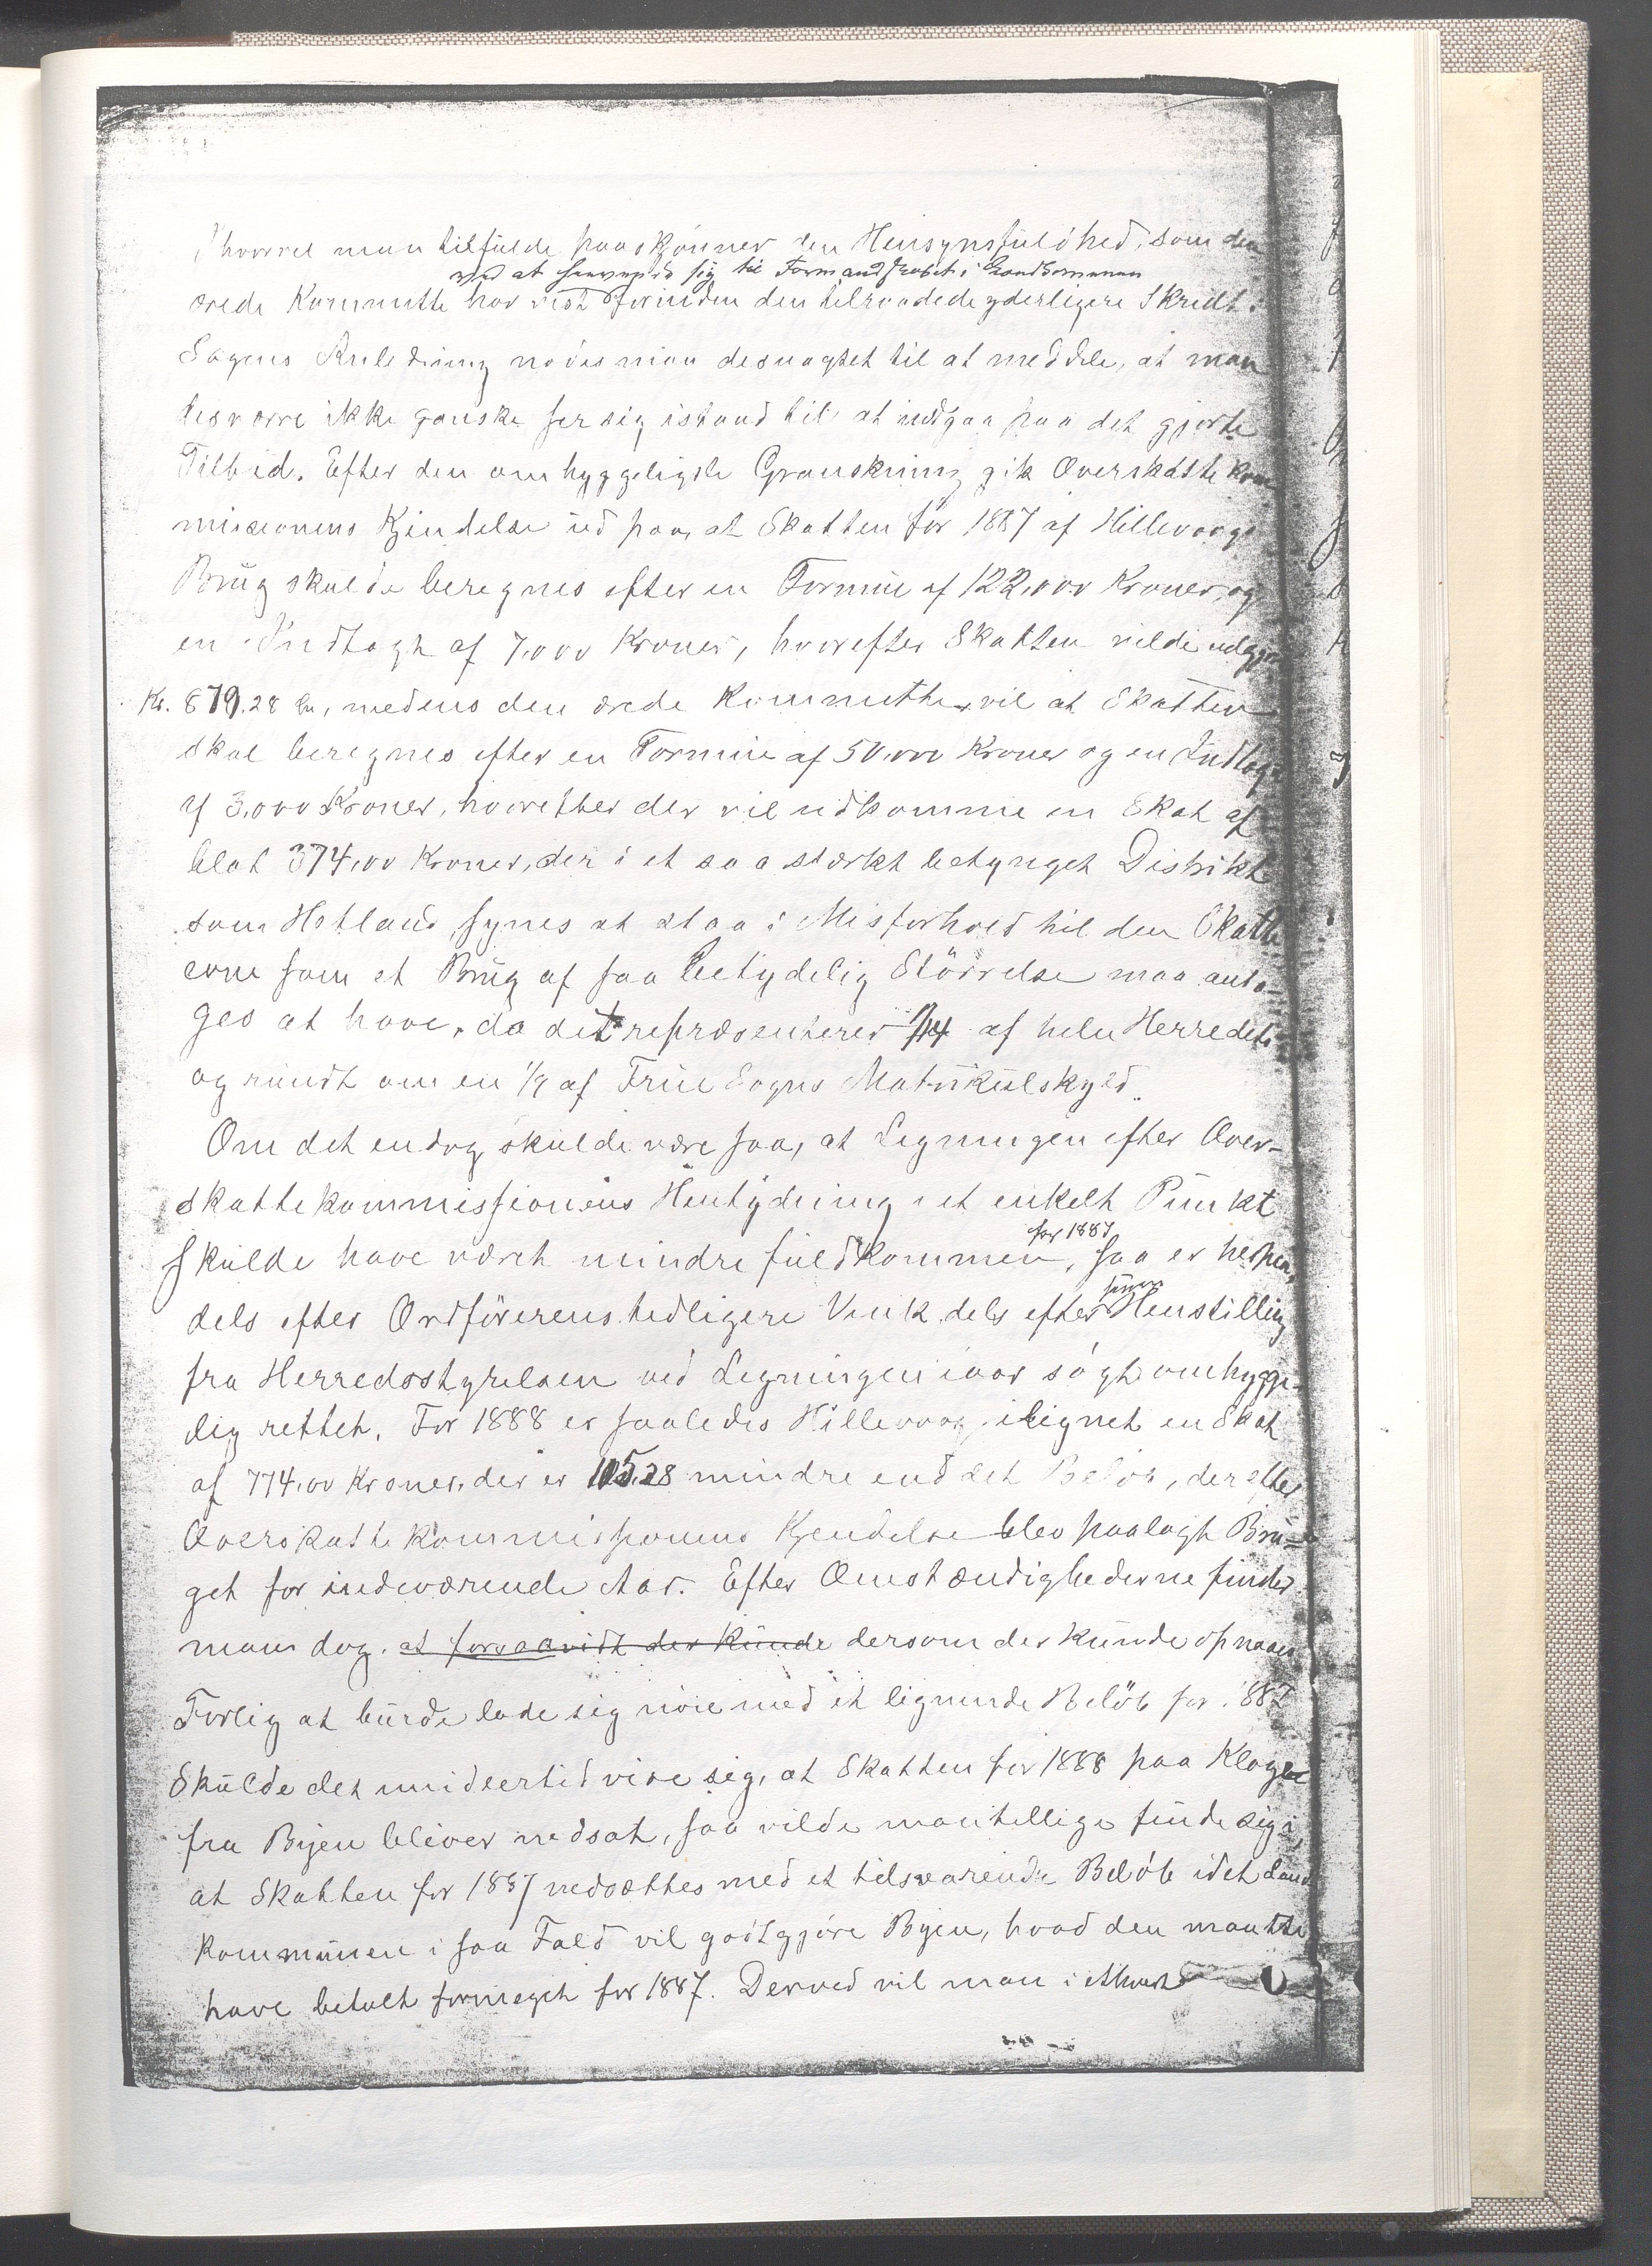 Ihvorvel man tilfulde paaskjønner den Hensynsfuldhed, som den
ved at henvende sig til Formandskabet i Landkommunen
ærede Kommitte har vist forinden den tilraadede yderligere Skridt i
Sagens Anledning nødes man desuagtet til at meddele, at man
desværre ikke ganske ser sig istand til at indgaa paa det gjorte
Tilbud. Efter den omhyggeligste Granskning gik Overskattekom
missionens Kjendelse ud paa, at Skatten for 1887 af Hillevaags
Brug skulde beregnes efter en Formue af 122,000 Kroner, og
en Indtægt af 7,000 Kroner, hvorefter Skatten vilde udgjøre
Kr. 879.28 Øre, medens den ærede Kommitte vil at Skatten
skal beregnes efter en Formue af 50,000 Kroner og en Indtægt
af 3,000 Kroner, hvorefter der vil udkomme en Skat af
blot 374,00 Kroner, der i et saa stærkt betynget Distrikt
som Hetland synes at staa i Misforhold til den Skatte
evne som et Brug af saa betydelig Størrelse maa anta-
ges at have, da det repræsenterer 1/14 af hele Herredets
og rundt om en 1/9 af Frue Sogns Matrikulskyld.
Om det endog skulde være saa, at Ligningen efter Over-
skattekommissionens Hentydning i et enkelt Punkt
for 1887
skulde have været mindre fuldkommen, saa er herpaa,
dels efter Ordførerens tidligere Vink dels efter Henstilling
fra Herredsstyrelsen ved Ligningen iaar søgt omhygge-
lig rettet. For 1888 er saaledes Hillevaag ilignet en Skat
af 774,00 Kroner, der er 105.28 mindre end det Beløb, der efter
Overskattekommissionens Kjendelse blev paalagt Bru-
get for indeværende Aar. Efter Omstændighederne finder
man dog. at forsaavidt der kunde dersom der kunde opnaaes
Forlig at burde lade sig nøie med et lignende Beløb for 1887
Skulde det imidlertid vise sig, at Skatten for 1888 paa Klage
fra Byen bliver nedsat, saa vilde man tillige finde sig i,
at Skatten for 1887 nedsættes med et tilsvarende Beløb idet Land
kommunen i saa Fald vil godtgjøre Byen, hvad den maatte
have betalt formeget for 1887. Derved vil man i